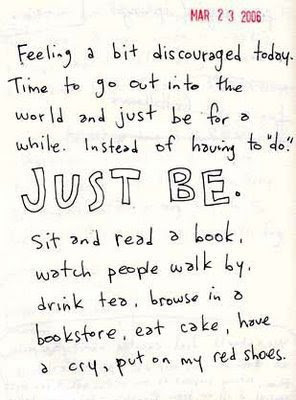 MAR 23 2006
Feeling a bit discouraged today.
Time to go out into the
world and just be for a
while. Instead of having to "do."
JUST BE.
Sit and read a book,
watch people walk by,
drink tea, browse in a
bookstore, eat cake, have
a cry, put on my red shoes.